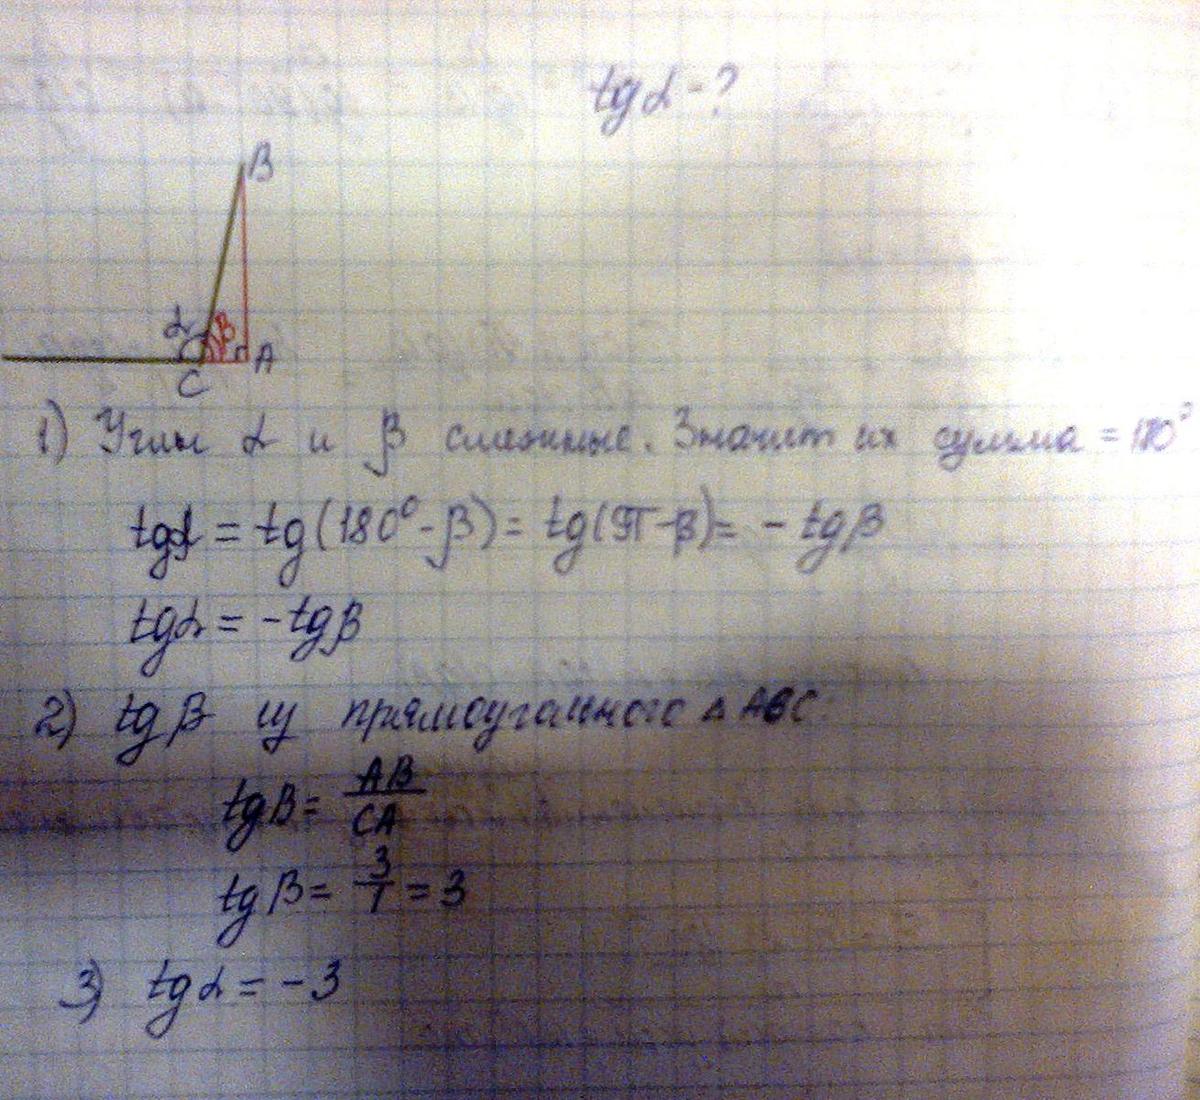 tgα - ?
B
α β
C A
1) Углы α и β смежные. Значит их сумма = 180°
tgα = tg(180° - β) = tg(π - β) = - tgβ
tgα = - tgβ
2) tgβ из прямоугольного △ ABC:
tgβ = AB / CA
tgβ = 3 / 1 = 3
3) tgα = - 3